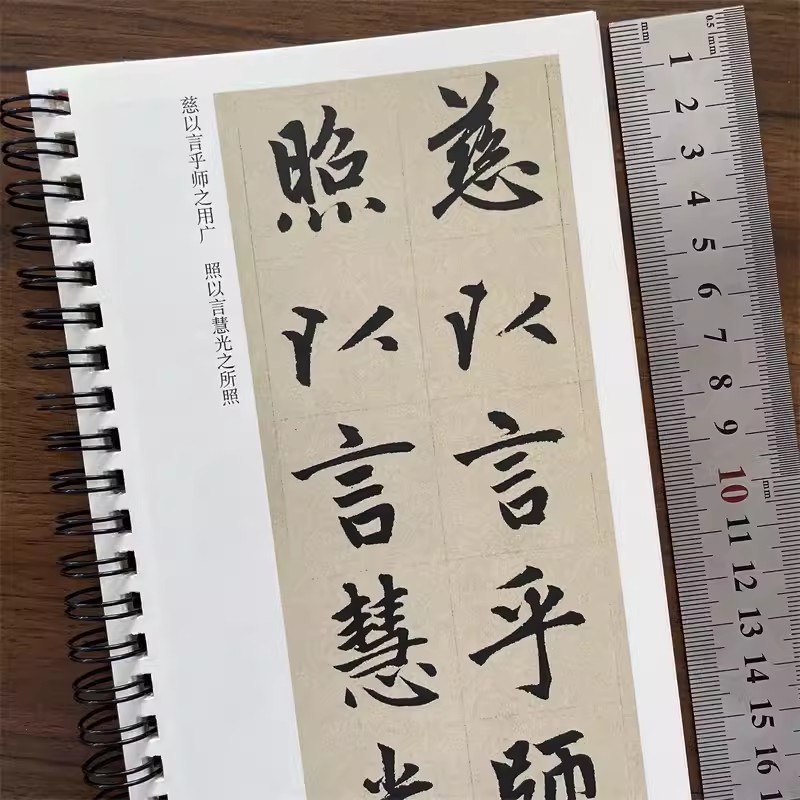 慈以言乎师
照以言慧光
慈以言乎师之用广 照以言慧光之所照
0.5 1mm
mm
1 2 3 4 5 6 7 8 9 10 11 12 13 14 15 16
mm